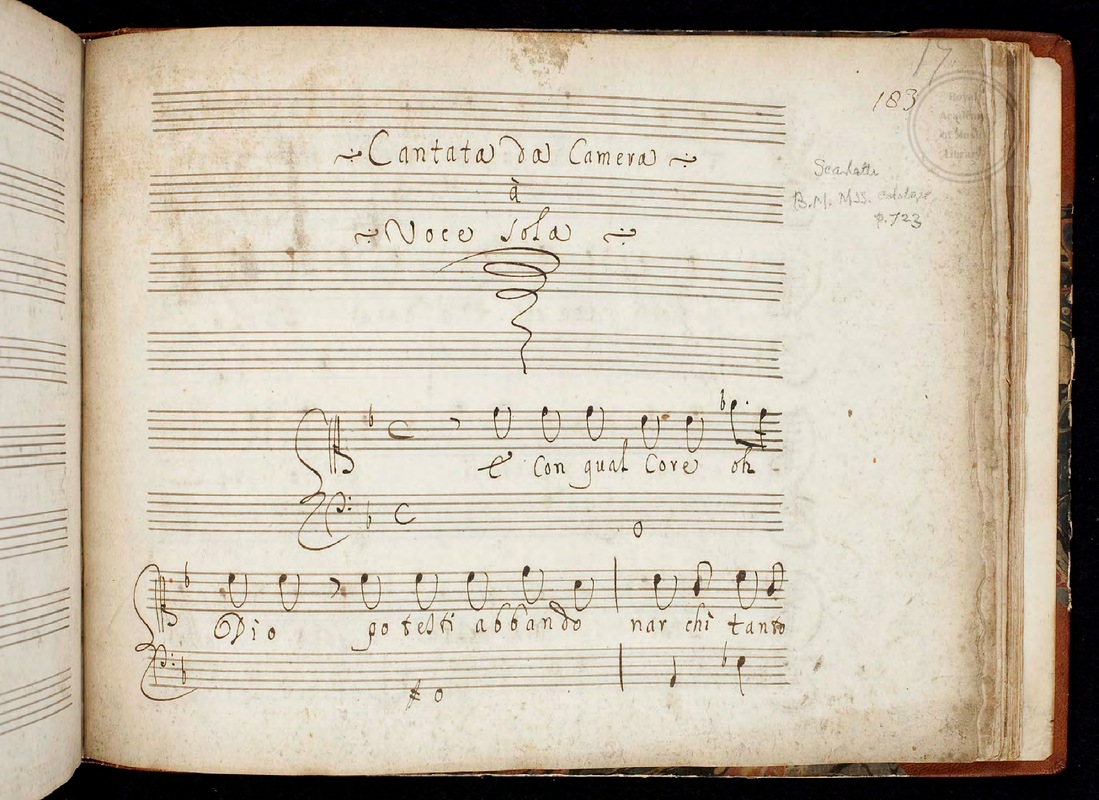 17
183
Royal
Academy
of Music
Library
Scarlatti
B.M. MSS. catalogue
p. 723
Cantata da Camera
à
Voce sola
E Con qual Core oh
Dio potesti abbando nar chi tanto